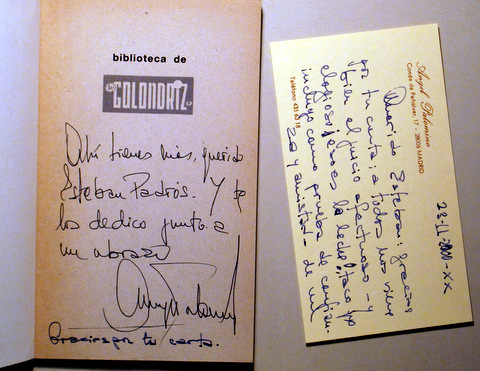 biblioteca de
LA GOLONDRIZ
Ahí tienes más, querido
Esteban Padrós. Y te
los dedico junto a
un abrazo
Gracias por tu carta.
Angel Palomino
Conde de Peñalver, 17 - 28006 MADRID
Teléfono 435 63 18
23-II-2000-XX
Querido Esteban: gracias
por tu carta; a todos nos viene
bien el juicio afectuoso - y
elogioso; eso es la leche, taco que
incluyo como prueba de confian-
za y amistad - de un